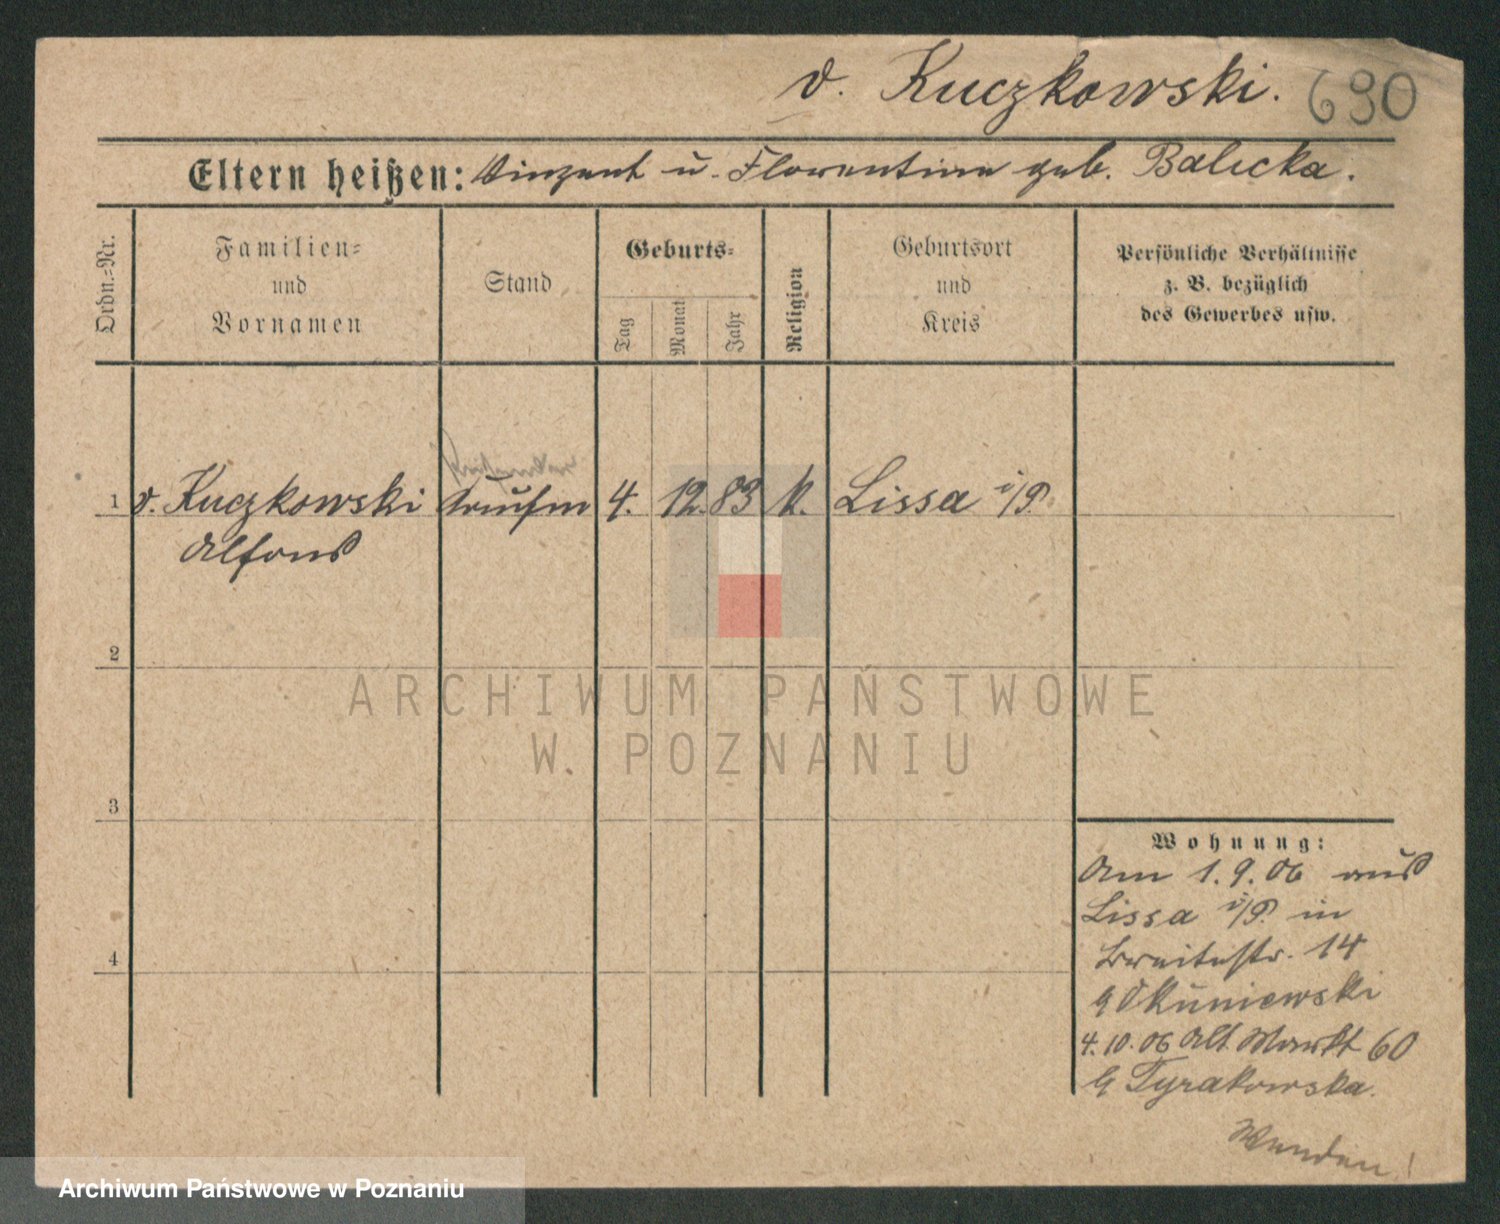 v. Kuczkowski. 690
Eltern heißen: Vinzent u. Florentine geb. Balicka.
Ordn.=Nr.
Familien=
und
Vornamen
Stand
Geburts=
Tag
Monat
Jahr
Religion
Geburtsort
und
Kreis
Persönliche Verhältnisse
z. B. bezüglich
des Gewerbes usw.
1 v. Kuczkowski 4. 12. 83 k. Lissa i/P.
Alfons
2
3
4
Wohnung:
Am 1.9.06 aus
Lissa i/P. in
Breitestr. 14
Okuniewski
4.10.06 Alt. Markt 60
Tyrakowska.
Wenden!
ARCHIWUM PAŃSTWOWE
W POZNANIU
Archiwum Państwowe w Poznaniu